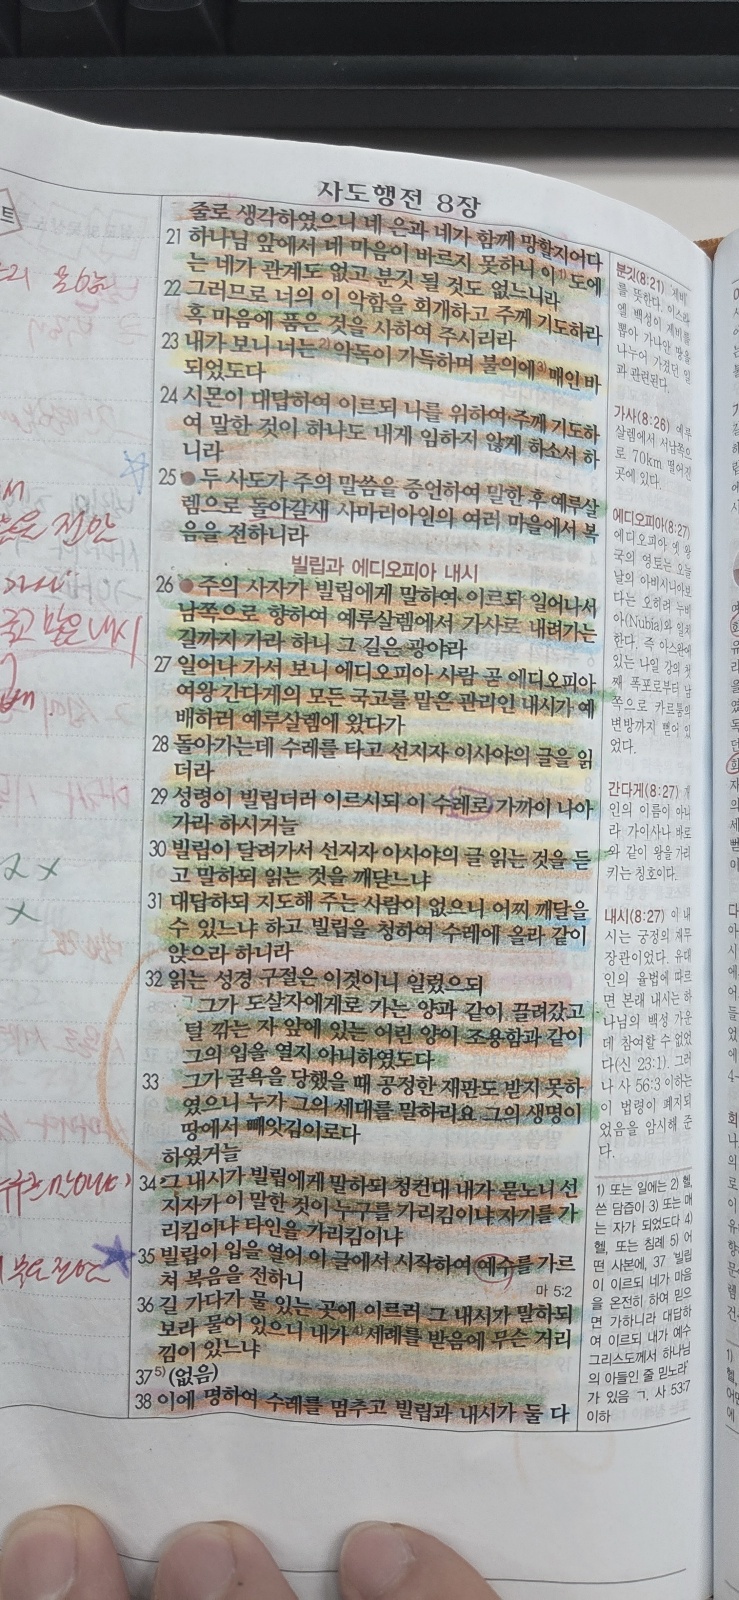 사도행전 8장
줄로 생각하였으니 네 은과 네가 함께 망할지어다
21 하나님 앞에서 네 마음이 바르지 못하니 이 1) 도에
는 네가 관계도 없고 분깃 될 것도 없느니라
22 그러므로 너의 이 악함을 회개하고 주께 기도하라
혹 마음에 품은 것을 사하여 주시리라
23 내가 보니 너는 2) 악독이 가득하며 불의에 3) 매인 바
되었도다
24 시몬이 대답하여 이르되 나를 위하여 주께 기도하
여 말한 것이 하나도 내게 임하지 않게 하소서 하
니라
25 ● 두 사도가 주의 말씀을 증언하여 말한 후 예루살
렘으로 돌아갈새 사마리아인의 여러 마을에서 복
음을 전하니라
빌립과 에디오피아 내시
26 ● 주의 사자가 빌립에게 말하여 이르되 일어나서
남쪽으로 향하여 예루살렘에서 가사로 내려가는
길까지 가라 하니 그 길은 광야라
27 일어나 가서 보니 에디오피아 사람 곧 에디오피아
여왕 간다게의 모든 국고를 맡은 관리인 내시가 예
배하러 예루살렘에 왔다가
28 돌아가는데 수레를 타고 선지자 이사야의 글을 읽
더라
29 성령이 빌립더러 이르시되 이 수레로 가까이 나아
가라 하시거늘
30 빌립이 달려가서 선지자 이사야의 글 읽는 것을 듣
고 말하되 읽는 것을 깨닫느냐
31 대답하되 지도해 주는 사람이 없으니 어찌 깨달을
수 있느냐 하고 빌립을 청하여 수레에 올라 같이
앉으라 하니라
32 읽는 성경 구절은 이것이니 일렀으되
ㄱ 그가 도살자에게로 가는 양과 같이 끌려갔고
털 깎는 자 앞에 있는 어린 양이 조용함과 같이
그의 입을 열지 아니하였도다
33 그가 굴욕을 당했을 때 공정한 재판도 받지 못하
였으니 누가 그의 세대를 말하리요 그의 생명이
땅에서 빼앗김이로다
하였거늘
34 그 내시가 빌립에게 말하되 청컨대 내가 묻노니 선
지자가 이 말한 것이 누구를 가리킴이냐 자기를 가
리킴이냐 타인을 가리킴이냐
35 빌립이 입을 열어 이 글에서 시작하여 예수를 가르
쳐 복음을 전하니
마 5:2
36 길 가다가 물 있는 곳에 이르러 그 내시가 말하되
보라 물이 있으니 내가 4) 세례를 받음에 무슨 거리
낌이 있느냐
37 5) (없음)
38 이에 명하여 수레를 멈추고 빌립과 내시가 둘 다
분깃(8:21) 제비
를 뜻한다. 이스라
엘 백성이 제비를
뽑아 가나안 땅을
나누어 가졌던 일
과 관련된다.
가사(8:26) 예루
살렘에서 서남쪽으
로 70km 떨어진
곳에 있다.
에디오피아(8:27)
에디오피아 옛 왕
국의 영토는 오늘
날의 아비시니아보
다는 오히려 누비
아(Nubia)와 일치
한다. 즉 아스완에
있는 나일 강의 첫
째 폭포로부터 남
쪽으로 카르툼의
변방까지 뻗어 있
었다.
간다게(8:27) 개
인의 이름이 아니
라 가이사나 바로
와 같이 왕을 가리
키는 칭호이다.
내시(8:27) 이 내
시는 궁정의 재무
장관이었다. 유대
인의 율법에 따르
면 본래 내시는 하
나님의 백성 가운
데 참여할 수 없었
다(신 23:1). 그러
나 사 56:3 이하는
이 법령이 폐지되
었음을 암시해 준
다.
1) 또는 일에는 2) 헬,
쓴 담즙이 3) 또는 매
는 자가 되었도다 4)
헬, 또는 침례 5) 어
떤 사본에, 37 '빌립
이 이르되 네가 마음
을 온전히 하여 믿으
면 가하니라 대답하
여 이르되 내가 예수
그리스도께서 하나님
의 아들인 줄 믿노라'
가 있음 ㄱ. 사 53:7
이하